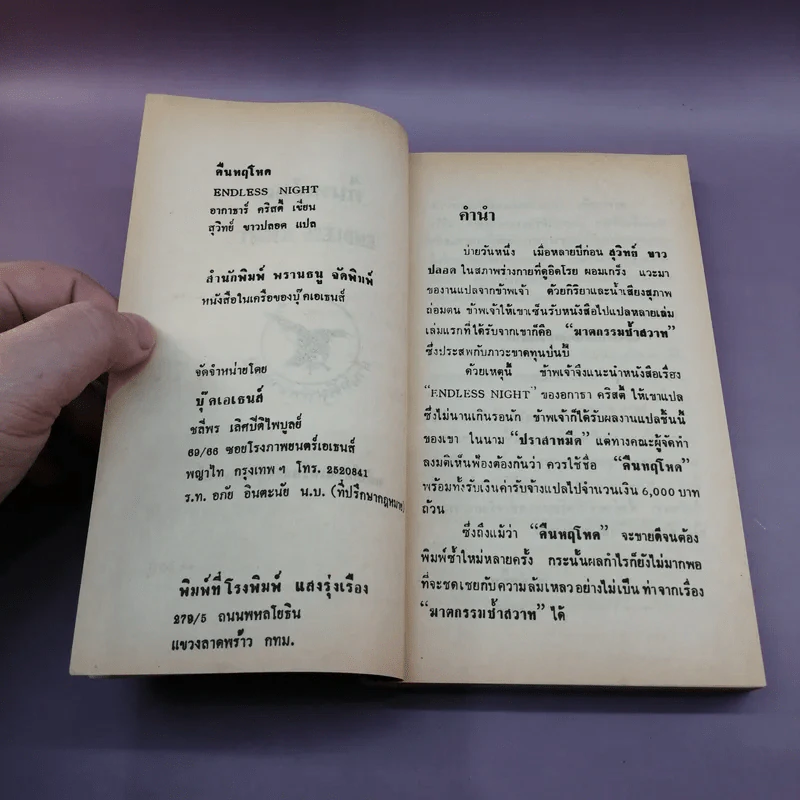 คืนหฤโหด
ENDLESS NIGHT
อากาธาร์ คริสตี้ เขียน
สุวิทย์ ขาวปลอด แปล
สำนักพิมพ์ พรานธนู จัดพิมพ์
หนังสือในเครือของบุ๊คเอเธนส์
จัดจำหน่ายโดย
บุ๊คเอเธนส์
ชลีพร เลิศปีติไพบูลย์
69/66 ซอยโรงภาพยนตร์เอเธนส์
พญาไท กรุงเทพฯ โทร. 2520841
ร.ท. อภัย อินตะนัย น.บ. (ที่ปรึกษากฎหมาย)
พิมพ์ที่ โรงพิมพ์ แสงรุ่งเรือง
279/5 ถนนพหลโยธิน
แขวงลาดพร้าว กทม.
คำนำ
บ่ายวันหนึ่ง เมื่อหลายปีก่อน สุวิทย์ ขาว
ปลอด ในสภาพร่างกายที่ดูอิดโรย ผอมเกร็ง แวะมา
ของานแปลจากข้าพเจ้า ด้วยกิริยาและน้ำเสียงสุภาพ
ถ่อมตน ข้าพเจ้าให้เขาเซ็นรับหนังสือไปแปลหลายเล่ม
เล่มแรกที่ได้รับจากเขาก็คือ “ฆาตกรรมซ้ำสวาท”
ซึ่งประสพกับภาวะขาดทุนป่นปี้
ด้วยเหตุนี้ ข้าพเจ้าจึงแนะนำหนังสือเรื่อง
“ENDLESS NIGHT” ของอกาธา คริสตี้ ให้เขาแปล
ซึ่งไม่นานเกินรอนัก ข้าพเจ้าก็ได้รับผลงานแปลชิ้นนี้
ของเขา ในนาม “ปราสาทมืด” แต่ทางคณะผู้จัดทำ
ลงมติเห็นพ้องต้องกันว่า ควรใช้ชื่อ “คืนหฤโหด”
พร้อมทั้งรับเงินค่ารับจ้างแปลไปจำนวนเงิน 6,000 บาท
ถ้วน
ซึ่งถึงแม้ว่า “คืนหฤโหด” จะขายดีจนต้อง
พิมพ์ซ้ำใหม่หลายครั้ง กระนั้นผลกำไรก็ยังไม่มากพอ
ที่จะชดเชยกับความล้มเหลวอย่างไม่เป็นท่าจากเรื่อง
“ฆาตกรรมซ้ำสวาท” ได้